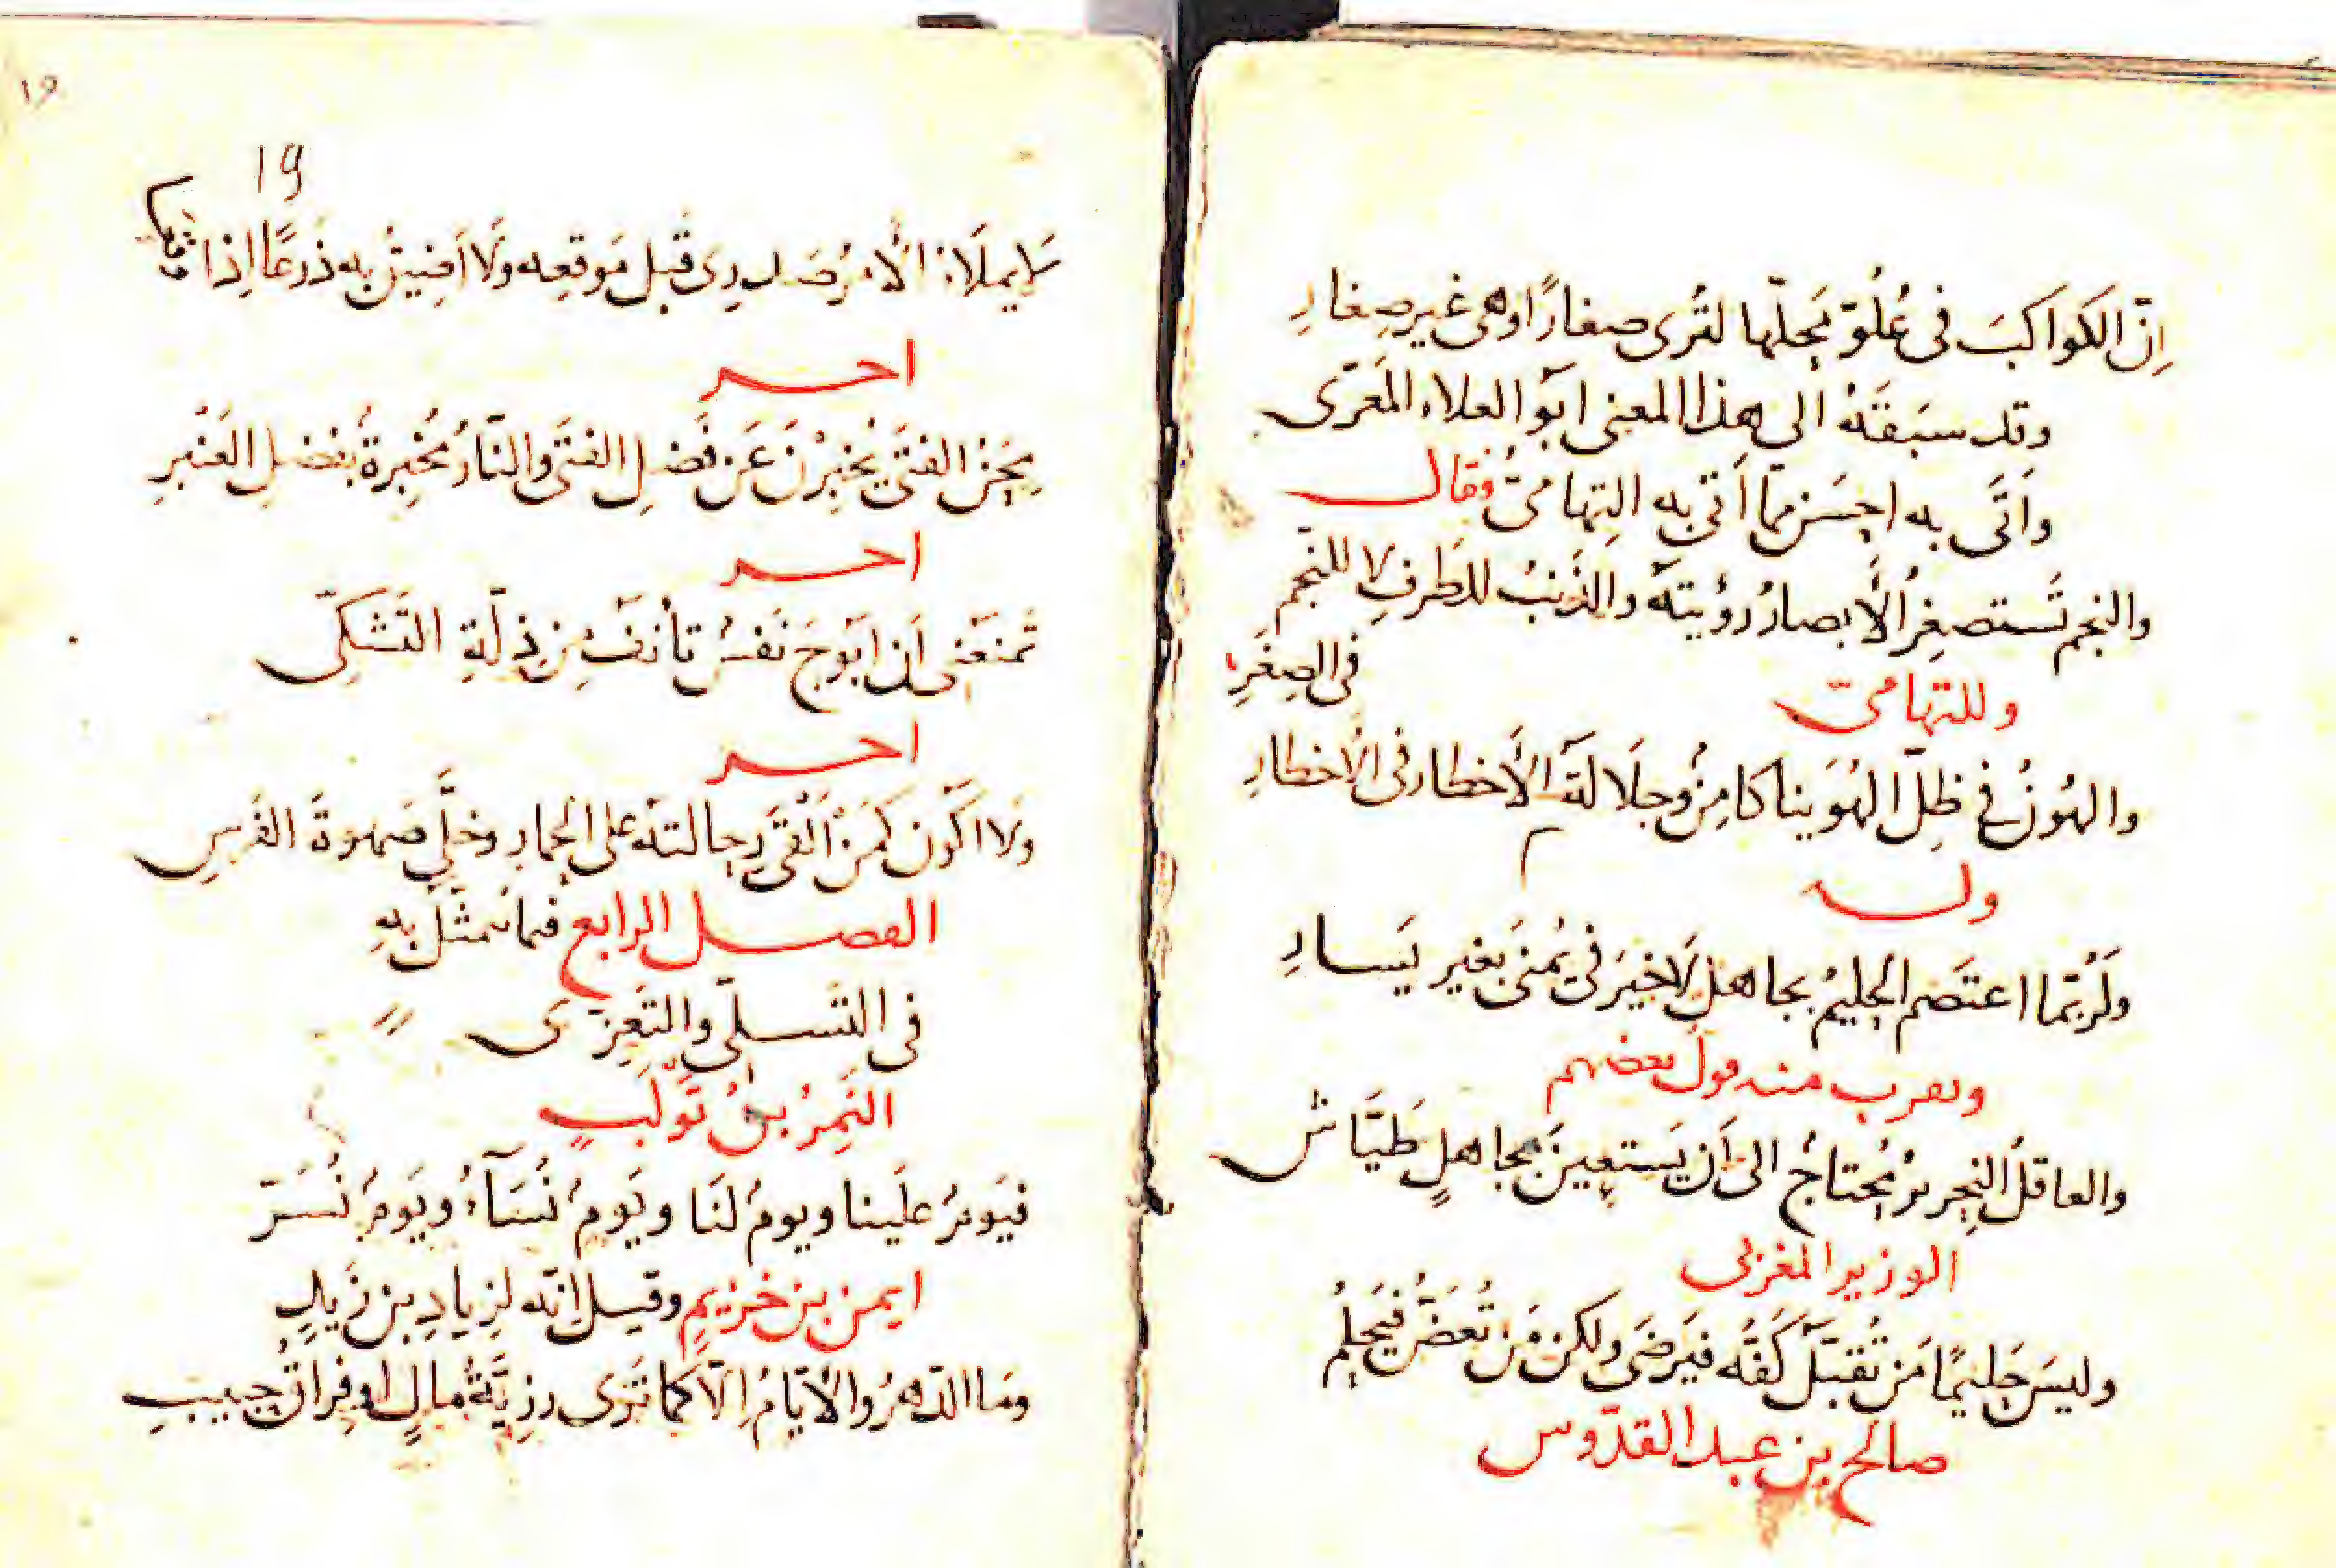 اِنّ الكَواكبَ فى عُلُوّ مَحلّها لتُرى صغارًا وهى غير صِغارِ
وقد سبَقَهُ الى هذا المعنى ابو العلاء المَعَرّى
وَاَتَى به احسَن ممّا اَتى به التِهامىّ فقال
والنجم تَستصغِرُ الأبصارُ رؤيتَه والذَنبُ للطَرفِ لا للنَجم
فى الصِغَرِ
وللتهامىّ
والهُونُ فى ظِلّ الهُوَينا كامِنٌ وجلَالةُ الأخطار فى الأخطارِ
وله
ولَرُبّما اعتَصم الحليمُ بجاهلٍ لا خيرَ فى يُمنَى بغير يَسارِ
ويقرب منه قول بعضهم
والعاقلُ النِحريرُ مُحتاجٌ الى اَن يَستعِينَ بجاهلٍ طَيّاش
الوزير المغربى
وليسَ حَليمًا مَن تُقبَّل كَفُّه فيَرضَى ولكن مَن تُعَضّ فيَحلمُ
صالح بن عبد القدّوس
١٩
19
لا يملَأ الأمرُ صَدرى قبل مَوقعه ولَا اَضِيقُ به ذَرعًا اِذا وقعا
اخر
مِحَنُ الفتَى يُخبِرْنَ عَن فَضلِ الفتَى والنّارُ مُخبِرةٌ بفَضلِ العَنْبَرِ
اخر
تمنَعُنى اَن ابَوحَ نَفسٌ تأنَفُ مِن ذِلّةِ التَشكّى
اخر
ولا اكُون كمَنْ اَلْقَى رِحالتَه على الحمارِ وخلّى صَهوةَ الفَرسِ
الفصل الرابع فيما يُتمثّل بهِ
فى التَسلّى والتَعزّى
النَمِرُ بنُ تَولَبٍ
فيَومٌ علَينا ويومٌ لنَا ويَومٌ نُسَآءُ ويَومٌ نُسَرّ
ايمن بن خزيمٍ وقيل انّه لزِيادِ بن زَيدٍ
ومَا الدّهرُ والأيّامُ اِلّا كما تَرَى رزِيّةُ مالٍ اوفِراقُ حبيبِ